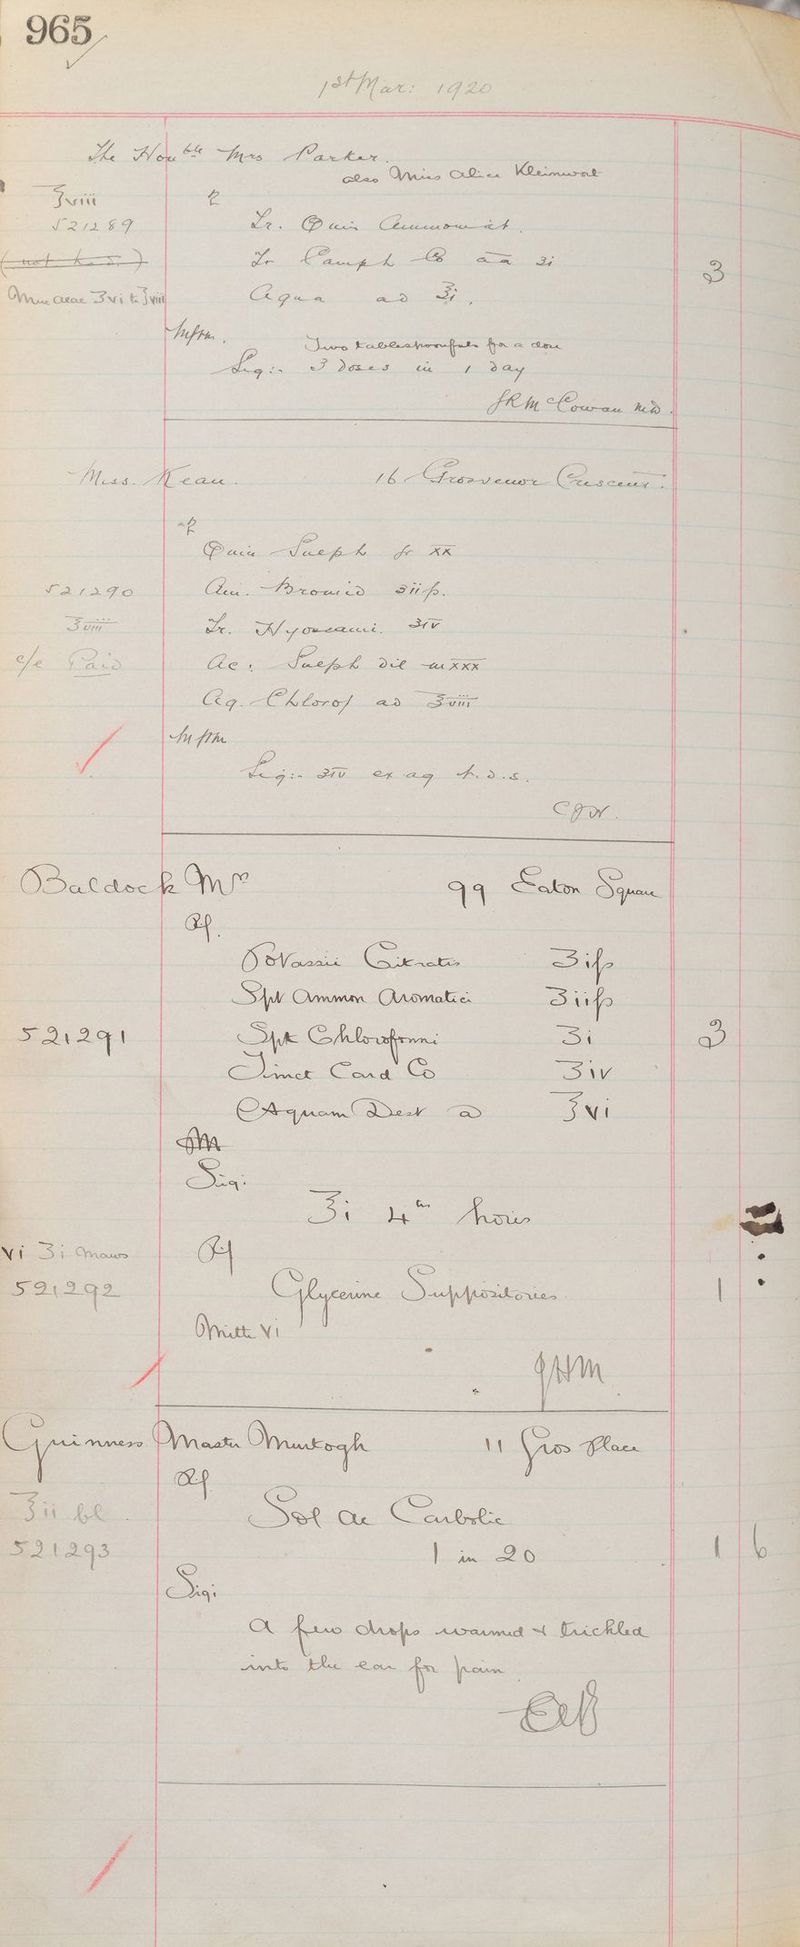 965
1st Mar: 1920
The Honble Mrs Parker.
also Miss Alice Kleinwort
℥viii ℞
521289 Tr. Quin Ammoniat.
(not h.s.) Tr Camph Co āā ʒi 3
℥vi to ℥viii Aqua ad ℥i.
Mftm. Two tablespoonfuls for a dose
Sig:- 3 doses in 1 day
JRMcCowan MD.
Miss. Kean. 16 Grosvenor Crescent.
℞
Quin Sulph gr xx
521290 Am. Bromid ʒiiſs.
℥viii Tr. Hyoscami. ʒiv
c/e Paid Ac: Sulph dil mxxx
Aq. Chlorof ad ℥viii
Mftm
Sig:- ʒiv ex aq t.d.s.
CJW.
Baldock Mrs 99 Eaton Square
Rf.
Potassii Citratis ʒiſs
Spt Ammon Aromatici ʒiiſs
521291 Spt Chloroformi ʒi 3
Tinct Card Co ʒiv
Aquam Dest ad ℥vi
M
Sig:
℥i 4tis horis
vi ʒi Maws Rf
521292 Glycerine Suppositories 1
Mitte vi
JHM
Guinness Master Murtogh 11 Gros Place
Rf
℥ii bl. Sol Ac Carbolic
521293 1 in 20 1 6
Sig:
A few drops warmed & trickled
into the ear for pain.